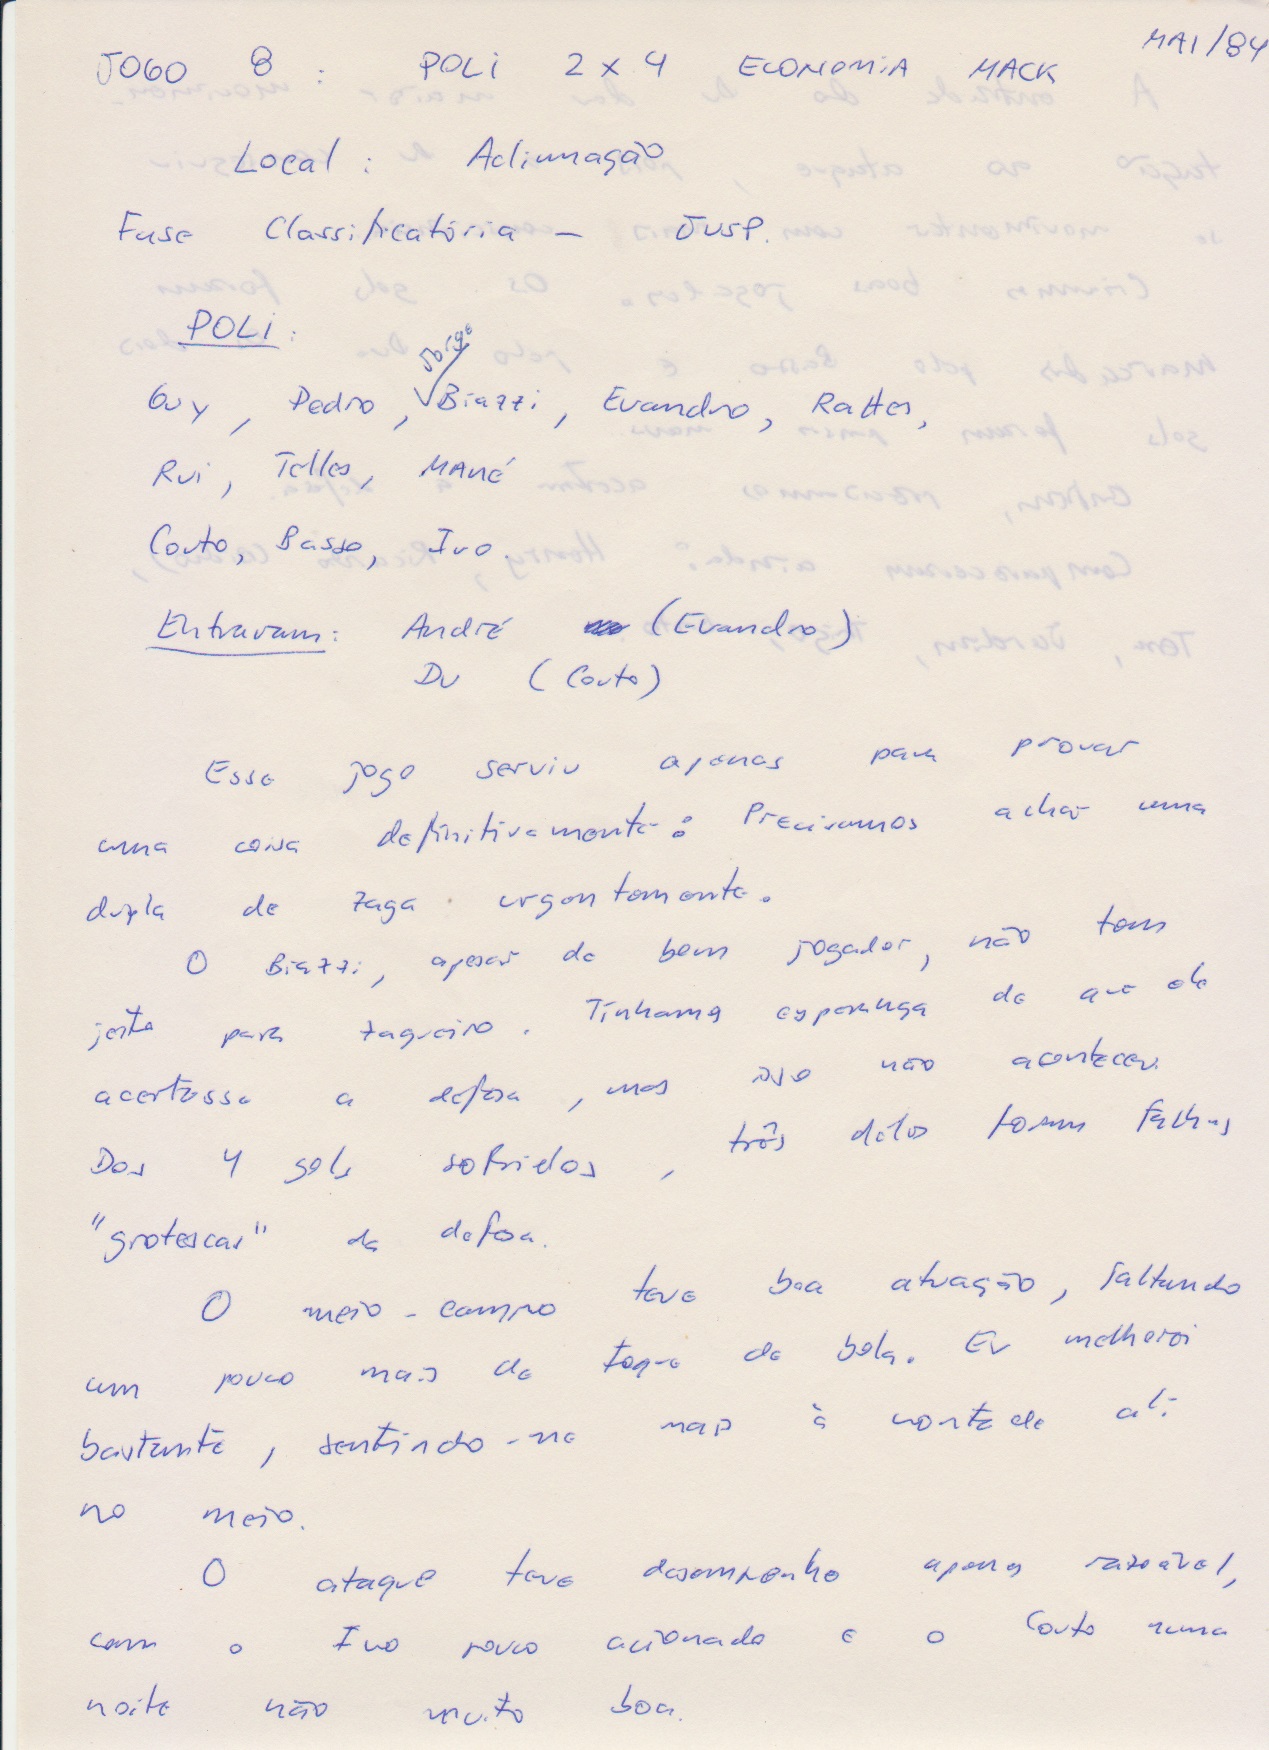 MAI/84
JOGO 8 : POLI 2 x 4 ECONOMIA MACK
Local : Aclimação
Fase Classificatória - JUSP.
POLI:
Jorge
Guy, Pedro, Biazzi, Evandro, Rattes,
Rui, Telles, MANÉ
Couto, Basso, Ivo.
Entravam: André (Evandro)
Du (Couto)
Esse jogo serviu apenas para provar
uma coisa definitivamente: Precisamos achar uma
dupla de zaga urgentemente.
O Biazzi, apesar de bom jogador, não tem
jeito para zagueiro. Tínhamos esperança de que ele
acertasse a defesa, mas isso não aconteceu.
Dos 4 gols sofridos, três deles foram falhas
"grotescas" da defesa.
O meio-campo teve boa atuação, faltando
um pouco mais de toque de bola. Eu melhorei
bastante, sentindo-me mais à vontade ali
no meio.
O ataque teve desempenho apenas razoável,
com o Ivo pouco acionado e o Couto numa
noite não muito boa.